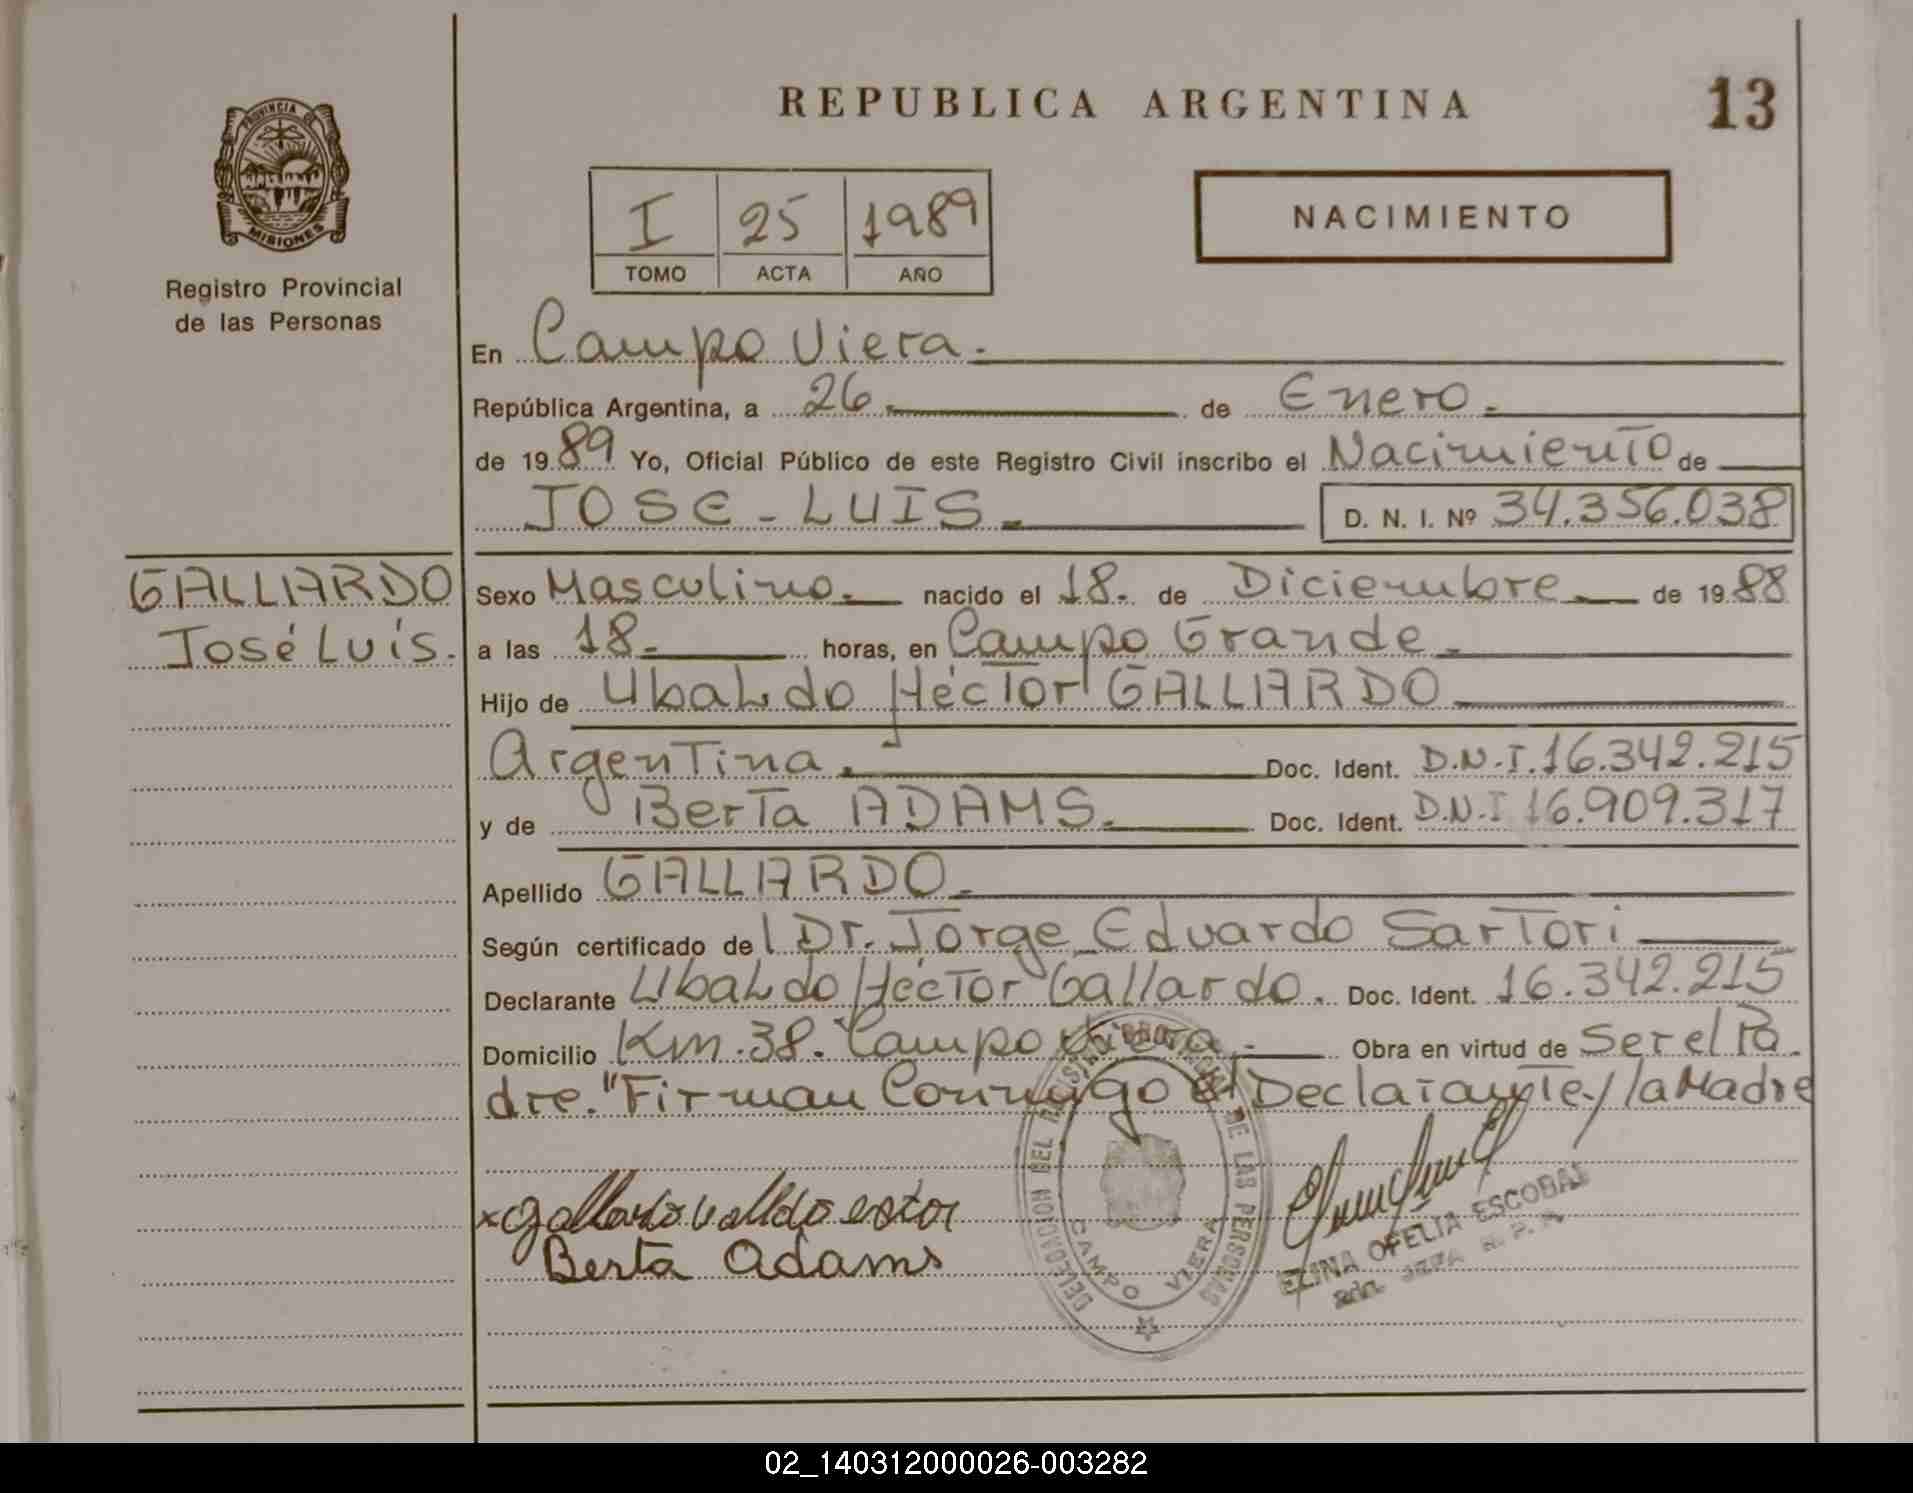 REPUBLICA ARGENTINA
13
PROVINCIA DE
MISIONES
Registro Provincial
de las Personas
I 25 1989
TOMO ACTA AÑO
NACIMIENTO
En Campo Viera.
República Argentina, a 26 de Enero.
de 1989 Yo, Oficial Público de este Registro Civil inscribo el Nacimiento de
JOSE - LUIS. D. N. I. Nº 34.356.038
GALLARDO
José Luís.
Sexo Masculino. nacido el 18. de Diciembre. de 1988
a las 18. horas, en Campo Grande.
Hijo de Ubaldo Héctor GALLARDO
Argentina. Doc. Ident. D.N.I. 16.342.215
y de Berta ADAMS. Doc. Ident. D.N.I 16.909.317
Apellido GALLARDO.
Según certificado del Dr. Jorge Eduardo Sartori
Declarante Ubaldo Héctor Gallardo. Doc. Ident. 16.342.215
Domicilio Km.38. Campo Viera. Obra en virtud de Ser el Pa
dre. "Firman Conmigo el Declarante y la Madre
x Gallardo valldo estor
Berta Adams
DELEGACION DEL REGISTRO PROVINCIAL DE LAS PERSONAS
CAMPO VIERA
ELINA OFELIA ESCOBAR
JEFA R. P. P.
02_140312000026-003282